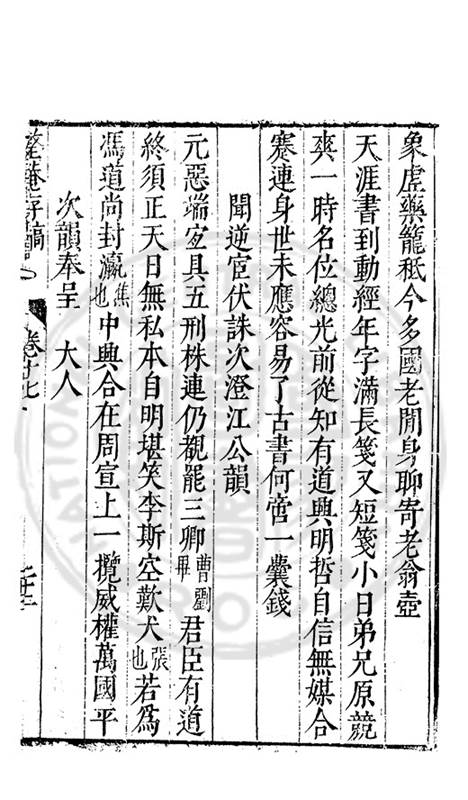 象虛藥籠秪今多國老閒身聊寄老翁壺
天涯書到動經年字滿長箋又短箋小日弟兄原競
爽一時名位總光前從知有道與明哲自信無媒合
蹇連身世未應容易了古書何啻一囊錢
聞逆宦伏誅次澄江公韻
元惡端宜具五刑株連仍覩罷三卿曹劉畢君臣有道
終須正天日無私本自明堪笑李斯空歎犬張也若為
馮道尚封瀛焦也中興合在周宣上一攬威權萬國平
次韻奉呈 大人
存稿
卷十七